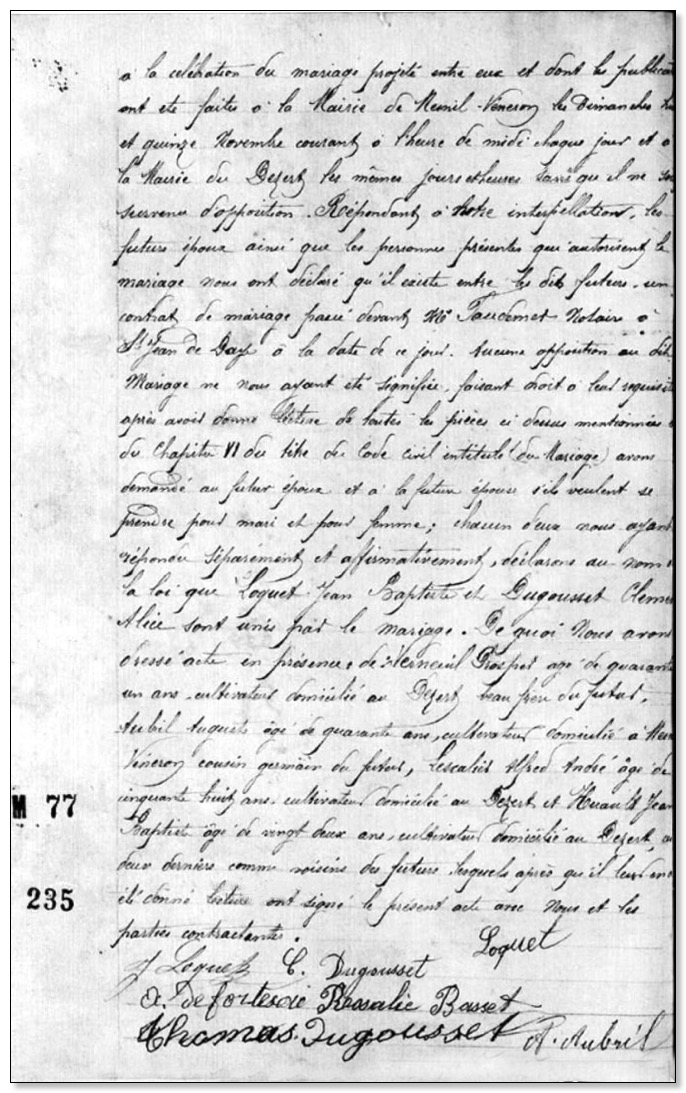 à la célébration du mariage projeté entre eux et dont les publica
ont été faites à la Mairie de Mesnil-Véneron les Dimanches
et quinze Novembre courant à l'heure de midi chaque jour et à
la Mairie du Dezert les mêmes jours et heures sans qu'il ne
survenu d'opposition. Répondant à notre interpellation, les
futurs époux ainsi que les personnes présentes qui autorisent le
mariage nous ont déclaré qu'il existe entre les dits futurs un
contrat de mariage passé devant Me Taudemet Notaire à
St Jean de Daye à la date de ce jour. Aucune opposition au dit
Mariage ne nous ayant été signifiée, faisant droit à leur réquisi
après avoir donné lecture de toutes les pièces ci dessus mentionnées
du Chapitre VI du titre du Code civil intitulé (du Mariage) avons
demandé au futur époux et à la future épouse s'ils veulent se
prendre pour mari et pour femme; chacun d'eux nous ayant
répondu séparément et affirmativement, déclarons au nom
la loi que Loquet Jean Baptiste et Dugousset Clemen
Alice sont unis par le mariage. De quoi Nous avons
dressé acte en présence de Verneuil Prosper âgé de quarante
un ans cultivateur domicilié au Dezert beau frère du futur,
Aubril Auguste âgé de quarante ans, cultivateur domicilié à
Véneron cousin germain du futur, Lescalier Alfred André âgé de
cinquante huit ans cultivateur domicilié au Dezert et Huault Jean
Baptiste âgé de vingt deux ans, cultivateur domicilié au Dezert,
deux derniers comme voisins des futurs, lesquels après qu'il leur en
été donné lecture ont signé le présent acte avec Nous et les
parties contractantes.
Loquet
J Loquet C. Dugousset
A. Rossalie Basset
Thomas. Dugousset A. Aubril
M 77
235